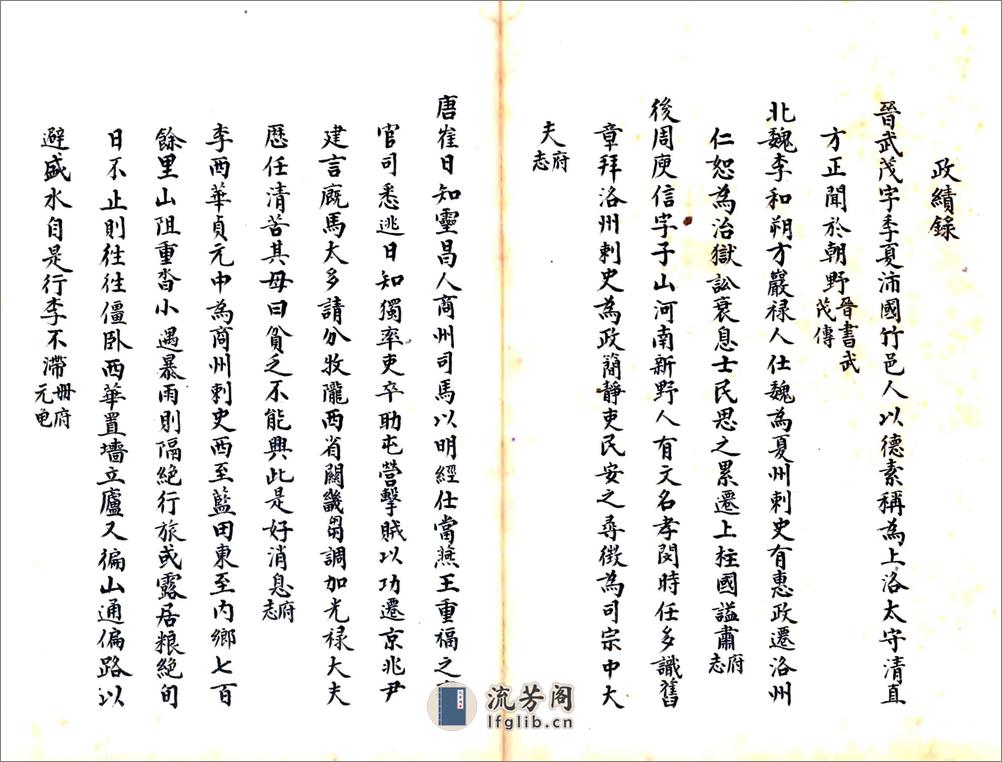 政績錄
晉武茂字季夏沛國竹邑人以德素稱為上洛太守清直
方正聞於朝野晉書武茂傳
北魏李和朔方巖祿人仕魏為夏州刺史有惠政遷洛州
仁恕為治獄訟衰息士民思之累遷上柱國謚肅府志
後周庾信字子山河南新野人有文名孝閔時任多識舊
章拜洛州刺史為政簡靜吏民安之尋徵為司宗中大
夫府志
唐崔日知靈昌人商州司馬以明經仕當燕王重福之
官司悉逃日知獨率吏卒助屯營擊賊以功遷京兆尹
建言廐馬太多請分牧隴西省關畿芻調加光祿大夫
歷任清苦其母曰貧乏不能興此是好消息府志
李西華貞元中為商州刺史西至藍田東至內鄉七百
餘里山阻重沓小遇暴雨則隔絕行旅或露居粮絕旬
日不止則往往僵卧西華置墻立廬又徧山通偏路以
避盛水自是行李不滯冊府元龟
流芳阁
lfglib.cn